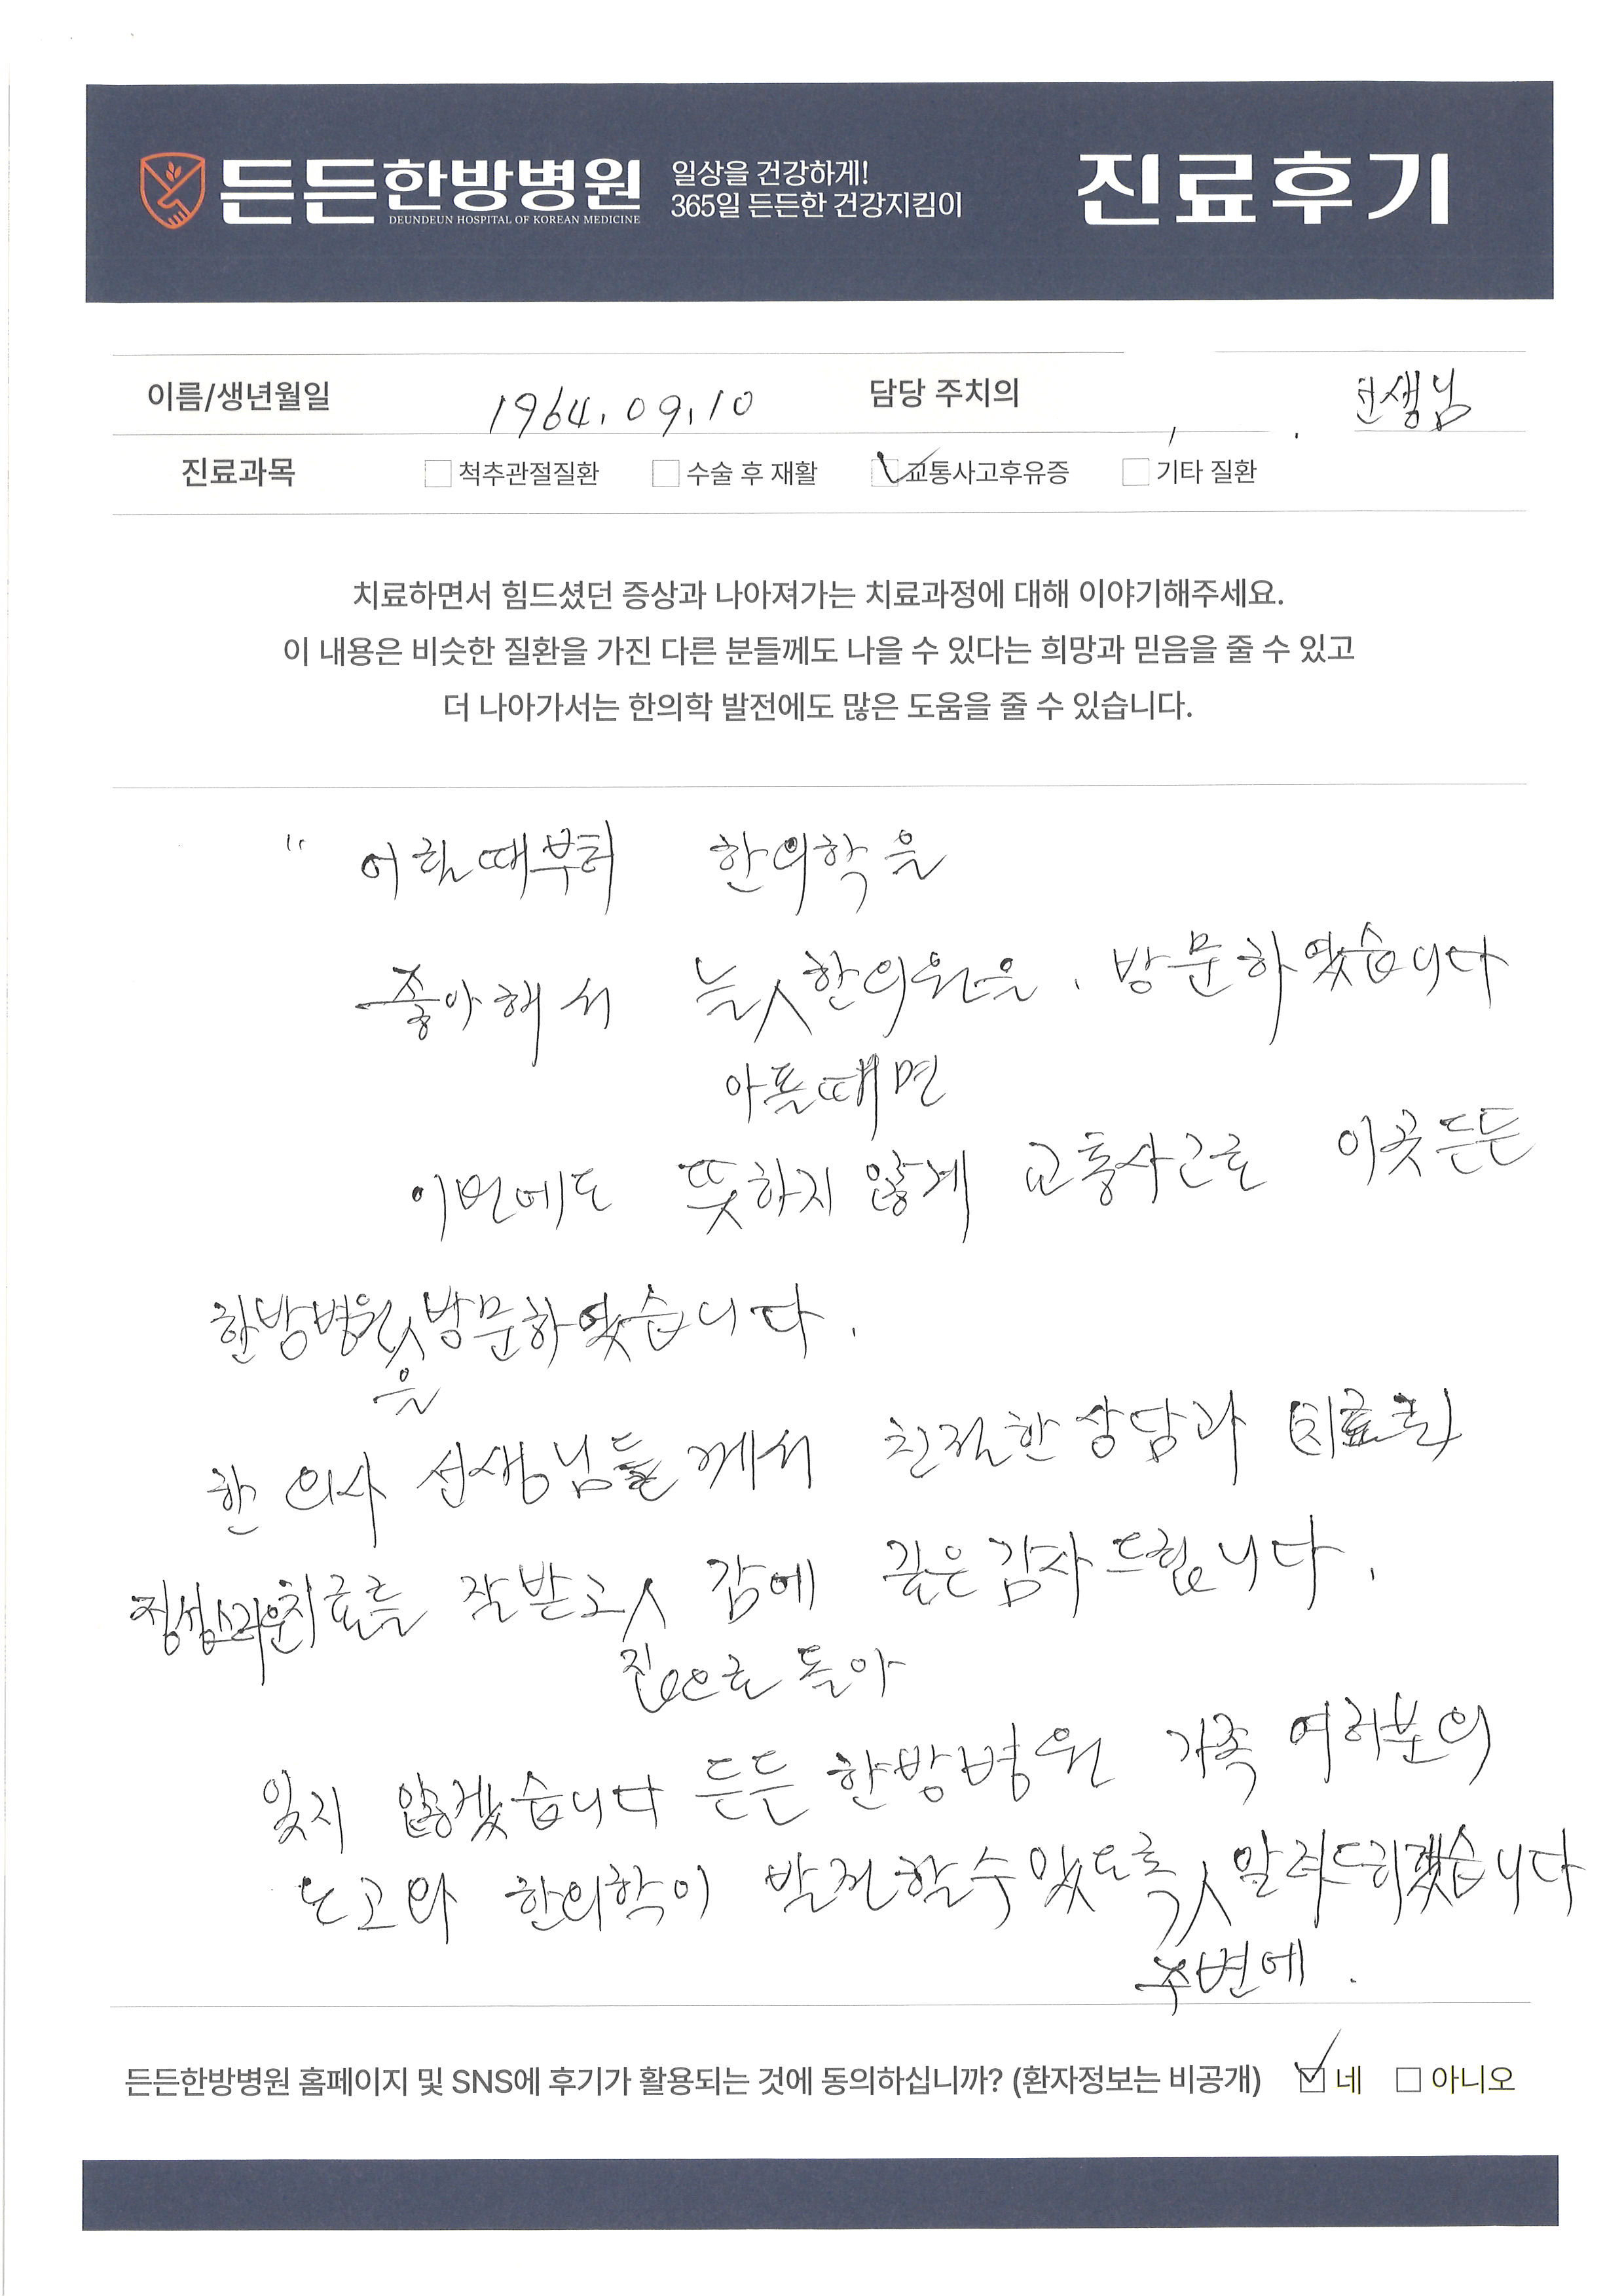 든든한방병원
DEUNDEUN HOSPITAL OF KOREAN MEDICINE
일상을 건강하게!
365일 든든한 건강지킴이
진료후기
이름/생년월일 1964. 09. 10 담당 주치의 선생님
진료과목 척추관절질환 수술 후 재활 교통사고후유증 기타 질환
치료하면서 힘드셨던 증상과 나아져가는 치료과정에 대해 이야기해주세요.
이 내용은 비슷한 질환을 가진 다른 분들께도 나을 수 있다는 희망과 믿음을 줄 수 있고
더 나아가서는 한의학 발전에도 많은 도움을 줄 수 있습니다.
" 어릴때부터 한의학을
좋아해서 늘 한의원을 . 방문하였습니다
아플때면
이번에도 뜻하지 않게 교통사고로 이곳 든든
한방병원 방문하였습니다 .
을
한의사 선생님들께서 친절한 상담과
정성스러운 치료를 잘 받고 감에 깊은 감사 드립니다 .
집으로 돌아
잊지 않겠습니다 든든 한방병원 가족 여러분의
노고와 한의학이 발전할수 있도록, 알려드리겠습니다
주변에 .
든든한방병원 홈페이지 및 SNS에 후기가 활용되는 것에 동의하십니까? (환자정보는 비공개) 네 아니오